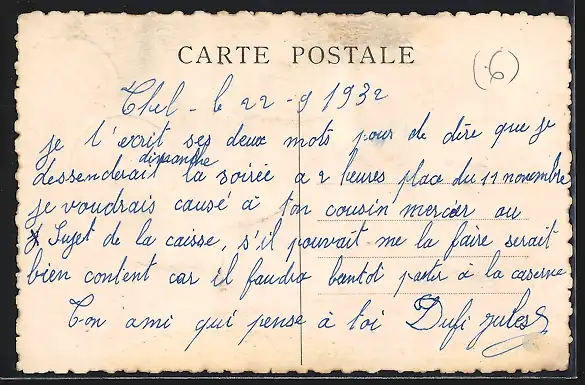 CARTE POSTALE
(6)
le 22-9 1932
je t'ecrit ses deux mots pour de dire que je
dimanche
dessenderait la soirée a 2 heures place du 11 novembre
je voudrais causé à ton cousin mercier au
Sujet de la caisse, s'il pouvait me la faire serait
bien content car il faudra bantot partir à la caserne
Ton ami qui pense à toi Dufi jules